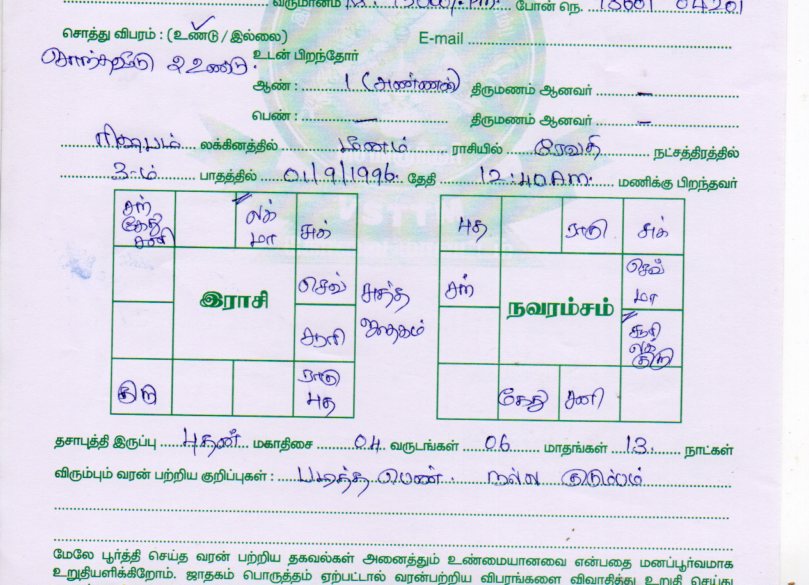 வருமானம் M. 15000/- Pm. போன் நெ.
சொத்து விபரம் : (உண்டு / இல்லை) E-mail
சொந்தவீடு 2 உண்டு. உடன் பிறந்தோர்
ஆண் : 1 (அண்ணன்) திருமணம் ஆனவர் –
பெண் : – திருமணம் ஆனவர் –
ரிஷபம் லக்கினத்தில் மீனம் ராசியில் ரேவதி நட்சத்திரத்தில்
3-ம் பாதத்தில் 01/9/1996. தேதி 12:40 Am. மணிக்கு பிறந்தவர்
சந் கேது சனி லக் மா சுக் புத ராகு சுக்
செவ் சுத்த செவ் மா
இராசி ஜாதகம் சந் நவரம்சம்
சூரி சூரி லக் குரு
குரு ராகு புத கேது சனி
தசாபுத்தி இருப்பு புதன் மகாதிசை 04 வருடங்கள் 06 மாதங்கள் 13 நாட்கள்
விரும்பும் வரன் பற்றிய குறிப்புகள் : படித்த பெண். நல்ல குடும்பம்
மேலே பூர்த்தி செய்த வரன் பற்றிய தகவல்கள் அனைத்தும் உண்மையானவை என்பதை மனப்பூர்வமாக
உறுதியளிக்கிறோம். ஜாதகம் பொருத்தம் ஏற்பட்டால் வரன்பற்றிய விபரங்களை விவாதித்து உறுதி செய்து